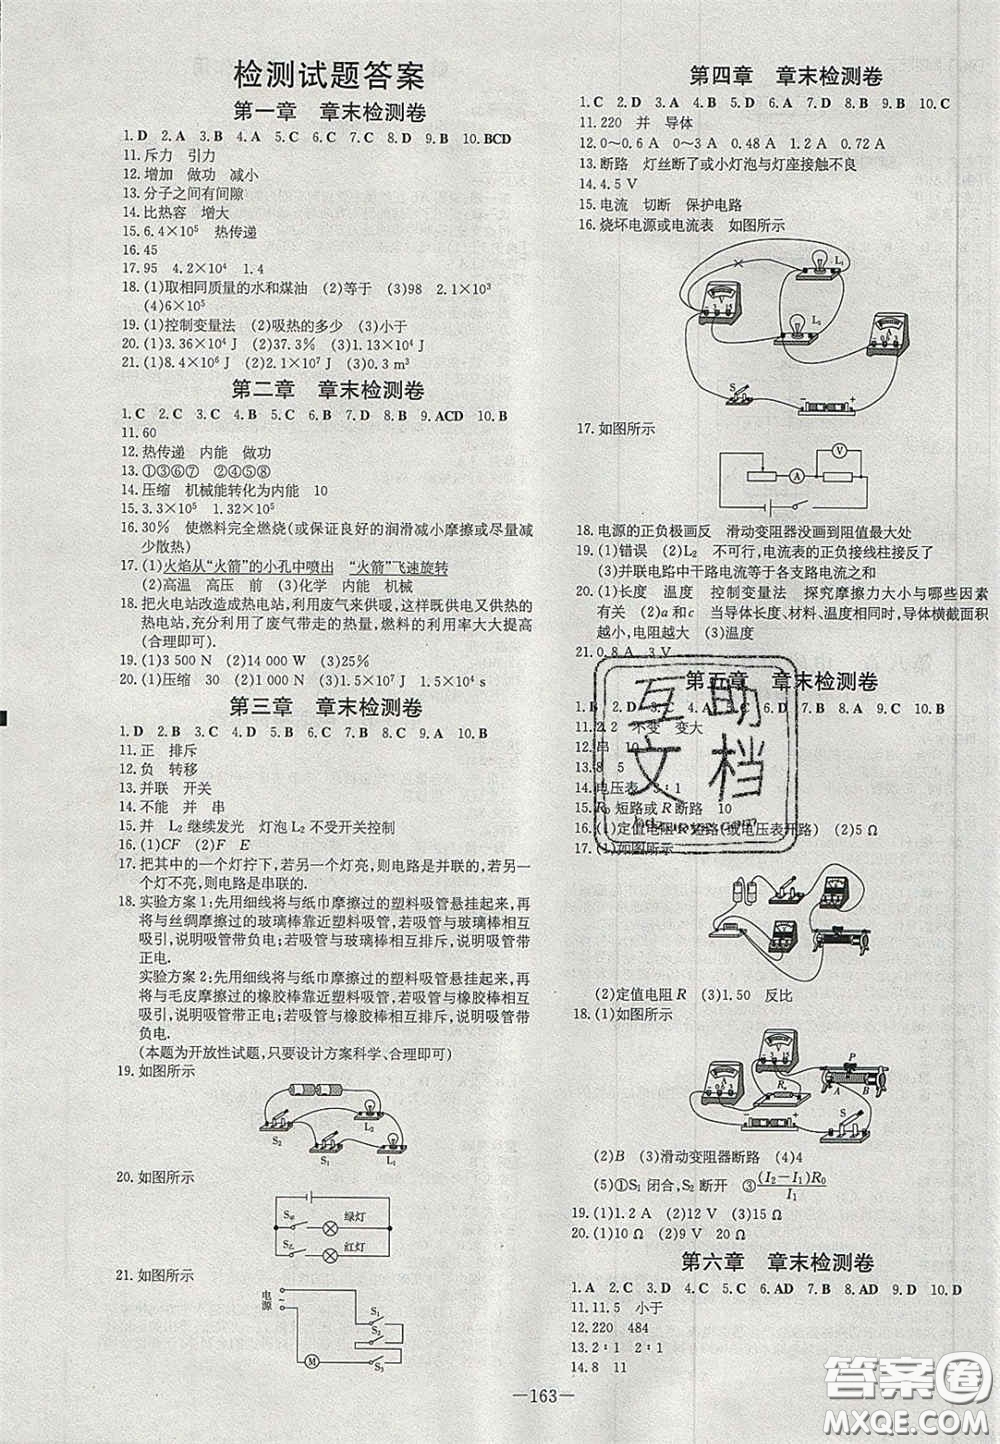 检测试题答案
第一章 章末检测卷
1.D 2.A 3.B 4.A 5.C 6.C 7.C 8.D 9.B 10.BCD
11.斥力 引力
12.增加 做功 减小
13.分子之间有间隙
14.比热容 增大
15.6.4×10⁵ 热传递
16.45
17.95 4.2×10⁴ 1.4
18.(1)取相同质量的水和煤油 (2)等于 (3)98 2.1×10³
(4)6×10⁵
19.(1)控制变量法 (2)吸热的多少 (3)小于
20.(1)3.36×10⁴ J (2)37.3% (3)1.13×10⁴ J
21.(1)8.4×10⁶ J (2)2.1×10⁷ J (3)0.3 m³
第二章 章末检测卷
1.C 2.D 3.C 4.B 5.C 6.B 7.D 8.B 9.ACD 10.B
11.60
12.热传递 内能 做功
13.①③⑥⑦ ②④⑤⑧
14.压缩 机械能转化为内能 10
15.3.3×10⁵ 1.32×10⁵
16.30% 使燃料完全燃烧(或保证良好的润滑减小摩擦或尽量减
少散热)
17.(1)火焰从“火箭”的小孔中喷出 “火箭”飞速旋转
(2)高温 高压 前 (3)化学 内能 机械
18.把火电站改造成热电站,利用废气来供暖,这样既供电又供热的
热电站,充分利用了废气带走的热量,燃料的利用率大大提高
(合理即可).
19.(1)3 500 N (2)14 000 W (3)25%
20.(1)压缩 30 (2)1 000 N (3)1.5×10⁷ J 1.5×10⁴ s
第三章 章末检测卷
1.B 2.D 3.C 4.D 5.C 6.D 7.A 8.D 9.C 10.B
11.正 排斥
12.负 转移
13.并联 开关
14.不能 并 串
15.并 L₂ 继续发光 灯泡 L₂ 不受开关控制
16.(1)CF (2)F E
17.把其中的一个灯拧下,若另一个灯亮,则电路是并联的.若另一
个灯不亮,则电路是串联的.
18.实验方案 1:先用细线将与纸巾摩擦过的塑料吸管悬挂起来,再
将与丝绸摩擦过的玻璃棒靠近塑料吸管,若吸管与玻璃棒相互
吸引,说明吸管带负电;若吸管与玻璃棒相互排斥,说明吸管带
正电.
实验方案 2:先用细线将与纸巾摩擦过的塑料吸管悬挂起来,再
将与毛皮摩擦过的橡胶棒靠近塑料吸管,若吸管与橡胶棒相互
吸引,说明吸管带正电;若吸管与橡胶棒相互排斥,说明吸管带
负电.
(本题为开放性试题,只要设计方案科学、合理即可)
19.如图所示
S₂ S₁ L₂ L₁
20.如图所示
S甲 绿灯
S乙 红灯
21.如图所示
电源 ~ S₁
S₂
M S₃
第四章 章末检测卷
1.C 2.D 3.D 4.A 5.C 6.A 7.D 8.B 9.B 10.C
11.220 并 导体
12.0~0.6 A 0~3 A 0.48 A 1.2 A 0.72 A
13.断路 灯丝断了或小灯泡与灯座接触不良
14.4.5 V
15.电流 切断 保护电路
16.烧坏电源或电流表 如图所示
L₁
V
L₂ A
S − +
17.如图所示
V
A
18.电源的正负极画反 滑动变阻器没画到阻值最大处
19.(1)错误 (2)L₂ 不可行,电流表的正负接线柱接反了
(3)并联电路中干路电流等于各支路电流之和
20.(1)长度 温度 控制变量法 探究摩擦力大小与哪些因素
有关 (2)a 和 c 当导体长度、材料、温度相同时,导体横截面积
越小,电阻越大 (3)温度
21.0.8 A 3 V
第五章 章末检测卷
1.B 2.D 3.C 6.D 7.D 8.A 9.C 10.B
11.2.2 不变 变大
12.串 10
13.8 5
14.电压表 3∶1
15.R₀ 短路或 R 断路 10
16.(1)定值电阻 R 短路(或电压表开路) (2)5 Ω
17.(1)如图所示
(2)定值电阻 R (3)1.50 反比
18.(1)如图所示
P
R₀ A B
− + S
(2)B (3)滑动变阻器断路 (4)4
(5)①S₁ 闭合,S₂ 断开 ③(I₂−I₁)R₀/I₁
19.(1)1.2 A (2)12 V (3)15 Ω
20.(1)10 Ω (2)9 V 20 Ω
第六章 章末检测卷
1.A 2.C 3.D 4.D 5.C 6.AD 7.B 8.AD 9.D 10.D
11.11.5 小于
12.220 484
13.2∶1 2∶1
14.8 11
—163—
互助
文档
答案圈
MXQE.COM